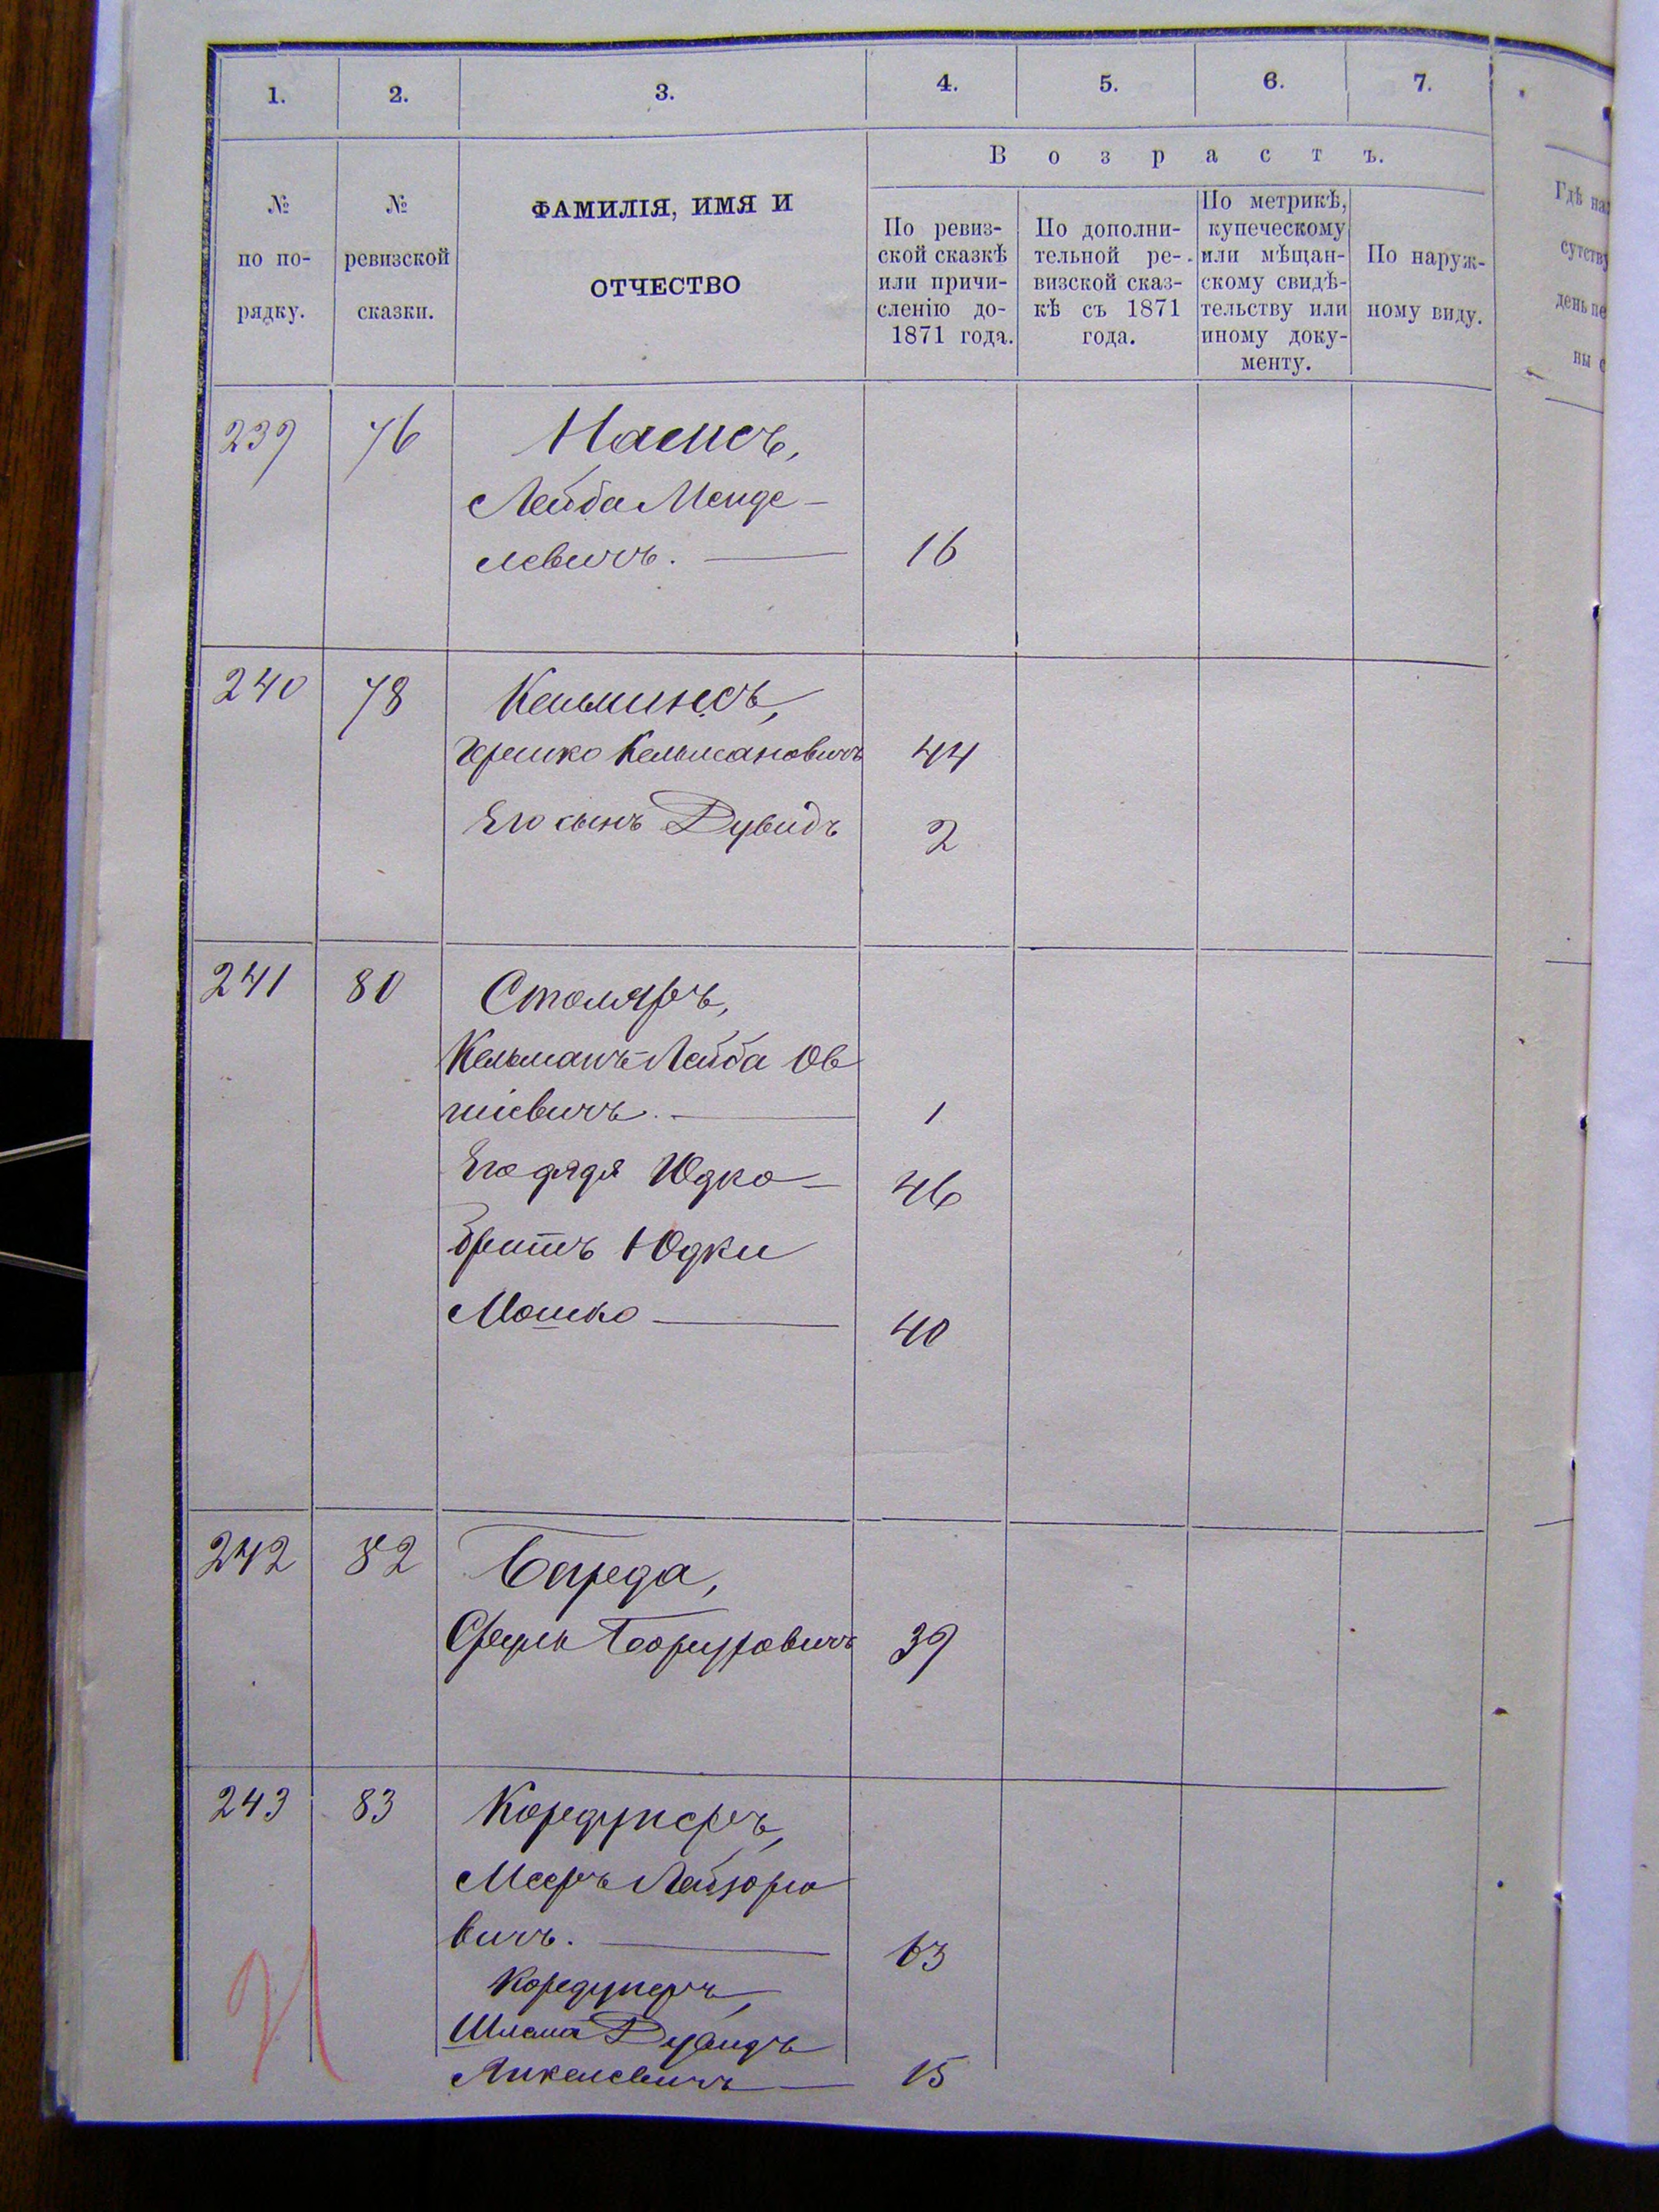 1. 2. 3. 4. 5. 6. 7.
Возрастъ.
№ по по-рядку.
№ ревизской сказки.
ФАМИЛІЯ, ИМЯ И
ОТЧЕСТВО
По ревиз-
ской сказкѣ
или причи-
сленію до-
1871 года.
По дополни-
тельной ре-
визской сказ-
кѣ съ 1871
года.
По метрикѣ,
купеческому
или мѣщан-
скому свидѣ-
тельству или
иному доку-
менту.
По наруж-
ному виду.
Гдѣ
239 76
Лейба Менде-
левичъ. 16
240 78 Кельминсъ,
Гершко Кельмановичъ 44
Его сынъ Дувидъ 2
241 80 Столяръ,
Кельманъ-Лейба Ов
шіевичъ. 1
Его дядя Юдко 46
братъ Юдки
Мошко 40
242 82
Сруль 39
243 83 Кордунеръ,
Мееръ Лейзоро
вичъ. 63
Кордунеръ,
Шлема Дувидъ
Анкелевичъ 15